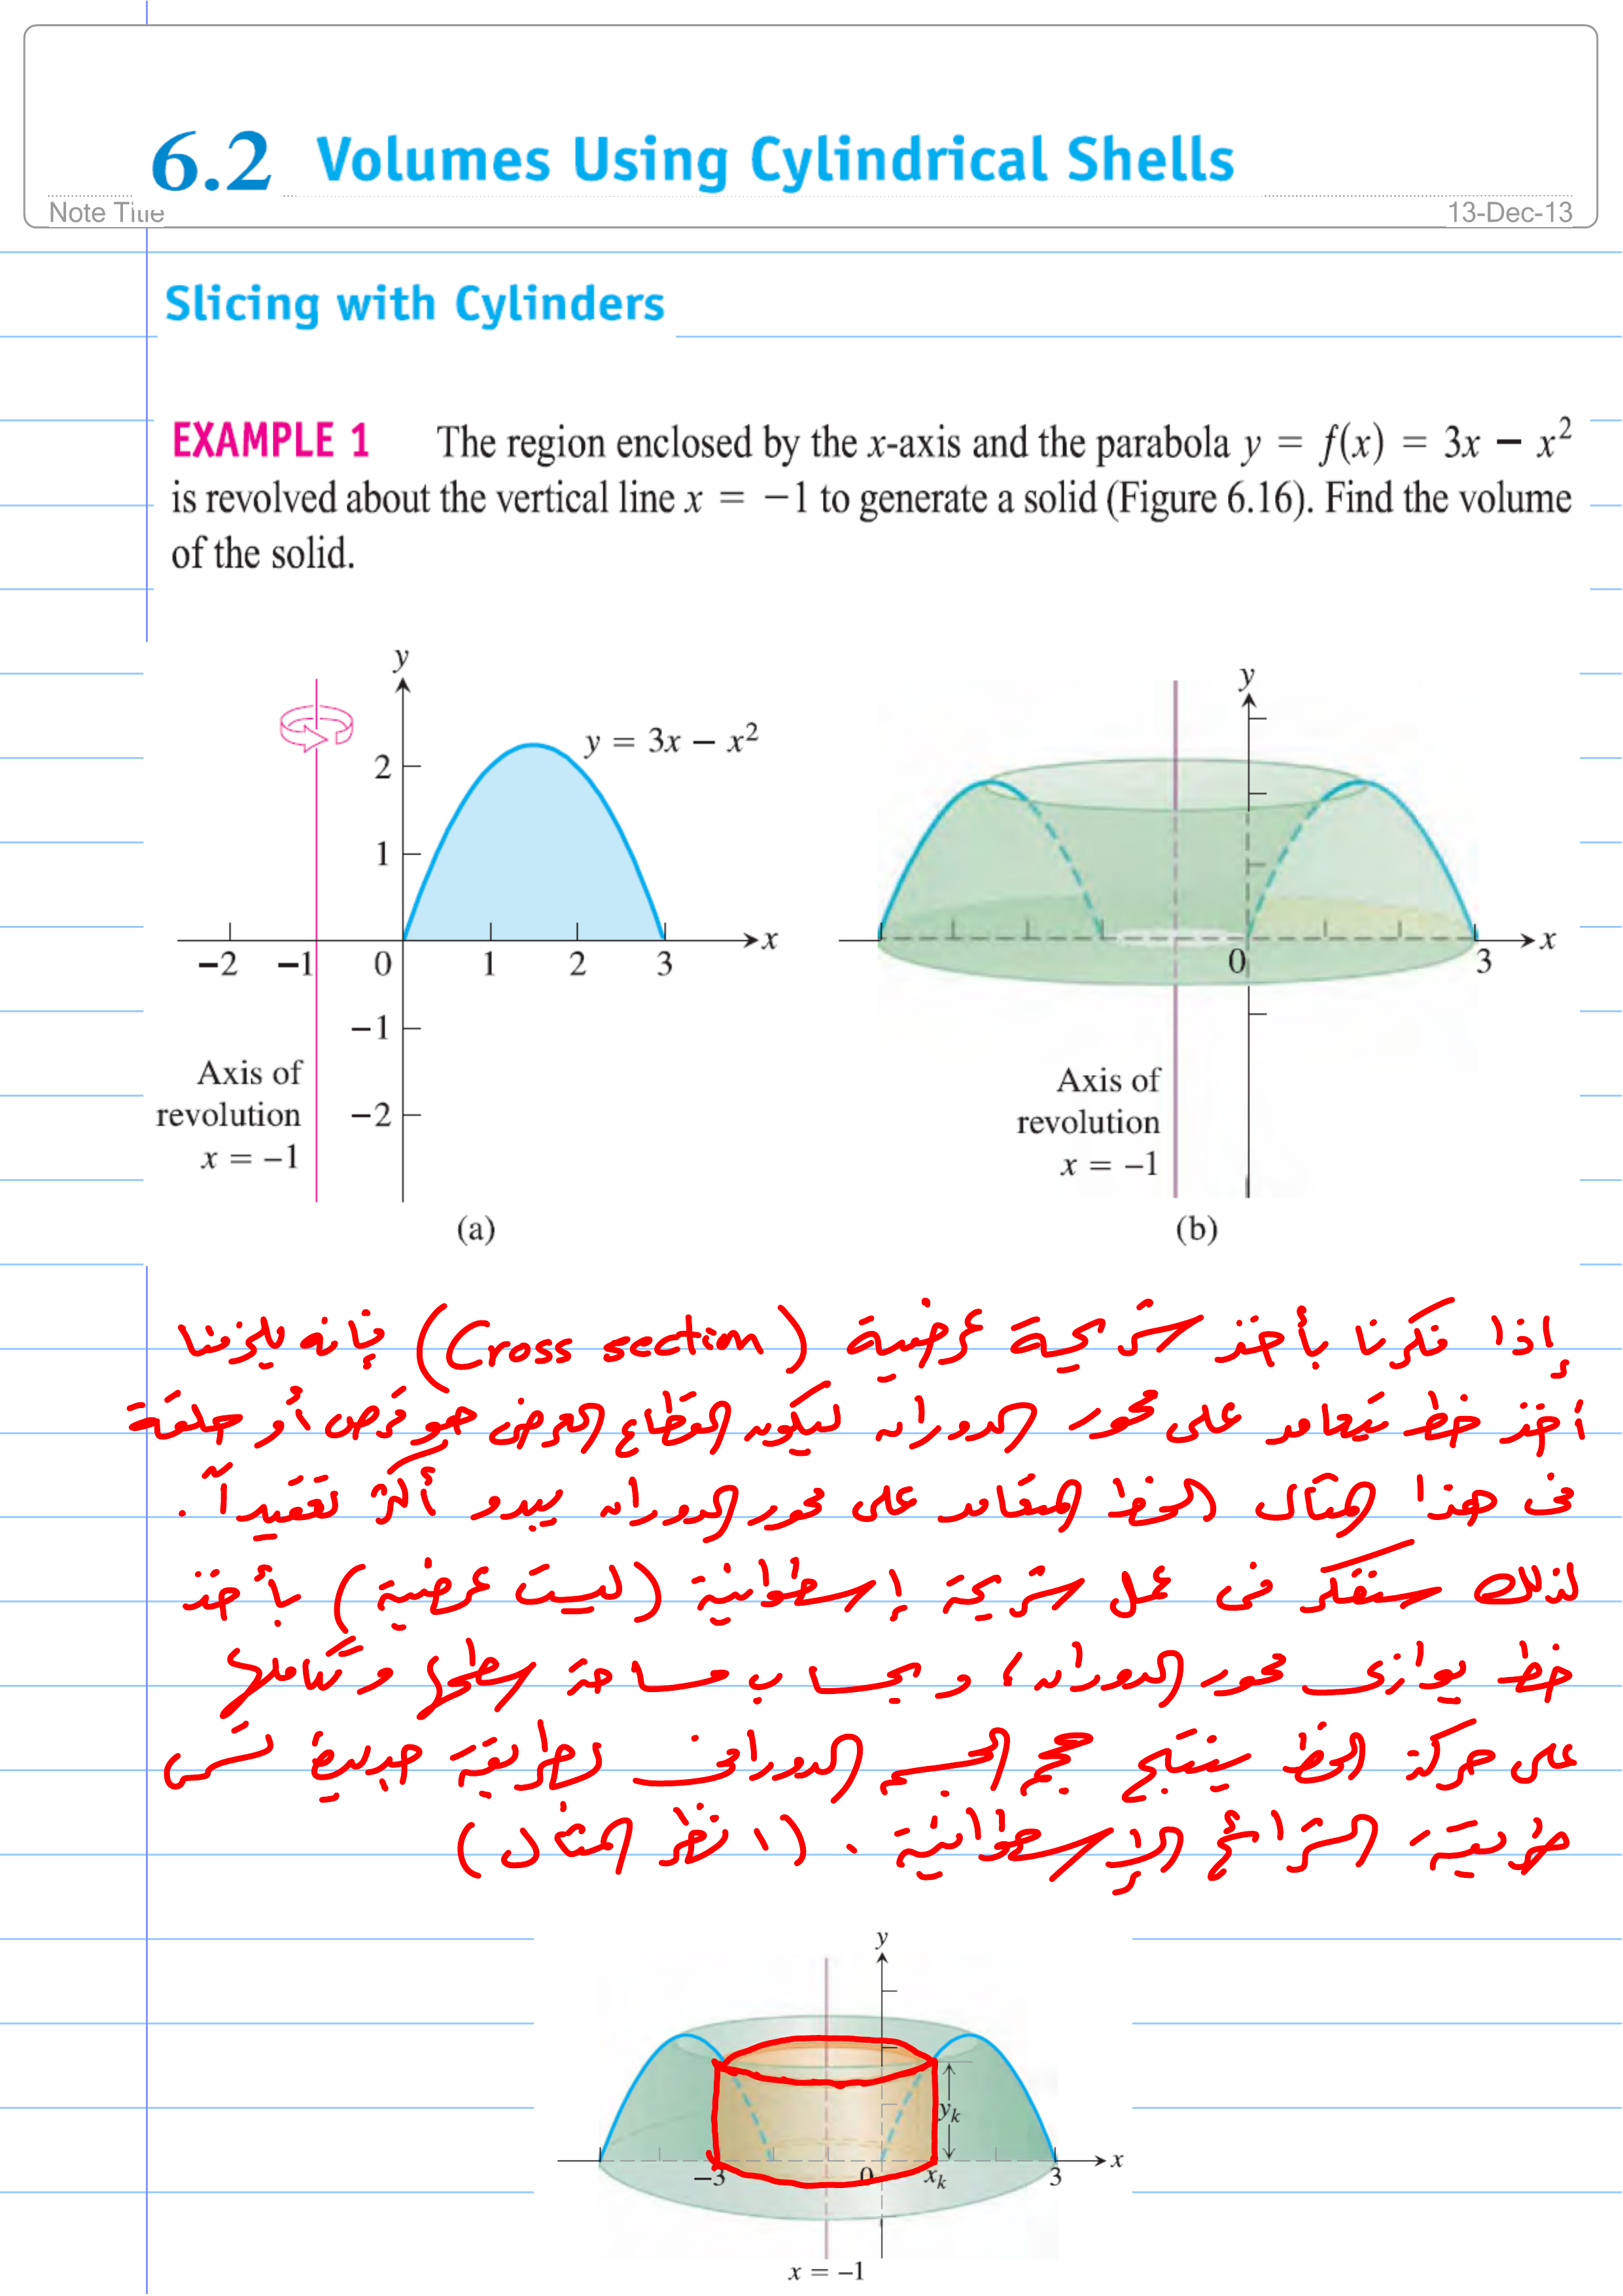 6.2 Volumes Using Cylindrical Shells
Note Title
13-Dec-13
Slicing with Cylinders
EXAMPLE 1 The region enclosed by the x-axis and the parabola y = f(x) = 3x − x²
is revolved about the vertical line x = −1 to generate a solid (Figure 6.16). Find the volume
of the solid.
y
y = 3x − x²
2
1
−2 −1 0 1 2 3 x
−1
−2
Axis of
revolution
x = −1
(a)
y
0 3 x
Axis of
revolution
x = −1
(b)
إذا فكرنا بأخذ شريحة عرضية (Cross section) فإنه يلزمنا
أخذ خط يتعامد على محور الدوران ليكون القطاع العرضى هو قرص أو حلقة
فى هذا المثال الخط المتعامد على محور الدوران يبدو أكثر تعقيداً .
لذلك سنفكر فى عمل شريحة إسطوانية (ليست عرضية) بأخذ
خط يوازى محور الدوران، و بحساب مساحة سطحها و تكاملها
على حركة الخط ينتج حجم الجسم الدورانى بطريقة جديدة تسمى
طريقة الشرائح الإسطوانية . (انظر المثال)
y
yk
−3 0 xk 3 x
x = −1